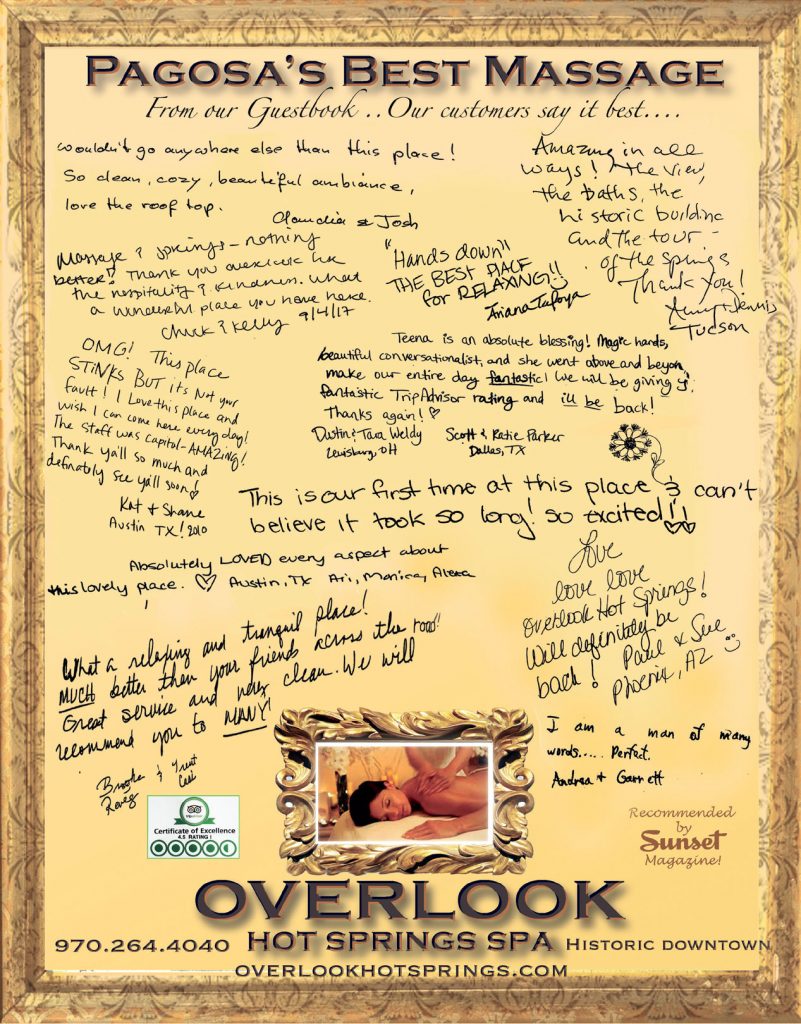 PAGOSA'S BEST MASSAGE
From our Guestbook .. Our customers say it best....
wouldn't go anywhere else than this place!
So clean, cozy, beautiful ambiance,
love the roof top.
Claudia & Josh
Amazing in all
ways! the view,
the baths, the
historic building
and the tour -
of the springs
Thank you!
Amy + Dennis
Tucson
Massage & springs - nothing
better! Thank you overlook for
the hospitality & kindness. What
a wonderful place you have here.
Chuck & Kelly
9/4/17
"Hands down"
THE BEST PLACE
for RELAXING!!
Ariana Tafoya
OMG! This place
STINKS BUT it's Not your
fault! I Love this place and
wish I can come here every day!
The Staff was Capitol-AMAZING!
Thank ya'll so much and
definatly see ya'll soon!
Kat & Shane
Austin TX! 2010
Teena is an absolute blessing! Magic hands,
beautiful conversationalist, and she went above and beyon
make our entire day fantastic! We will be giving
fantastic TripAdvisor rating and ill be back!
Thanks again! ♡
Dustin & Tara Weldy
Lewisburg, OH
Scott & Katie Parker
Dallas, TX
This is our first time at this place & can't
believe it took so long! so excited!!
Absolutely LOVED every aspect about
this lovely place. ♡ Austin, TX Ari, Monica, Alexa
Love
love love
Overlook Hot Springs!
Will definitely be
back! Paul & Sue
Phoenix, AZ
What a relaxing and tranquil place!
MUCH better than your friends across the road!
Great service and very clean. We will
recommend you to MANY!
I am a man of many
words.... Perfect.
Andrea + Garrett
tripadvisor
Certificate of Excellence
4.5 RATING!
Recommended
by
Sunset
Magazine!
OVERLOOK
970.264.4040 HOT SPRINGS SPA HISTORIC DOWNTOWN
OVERLOOKHOTSPRINGS.COM